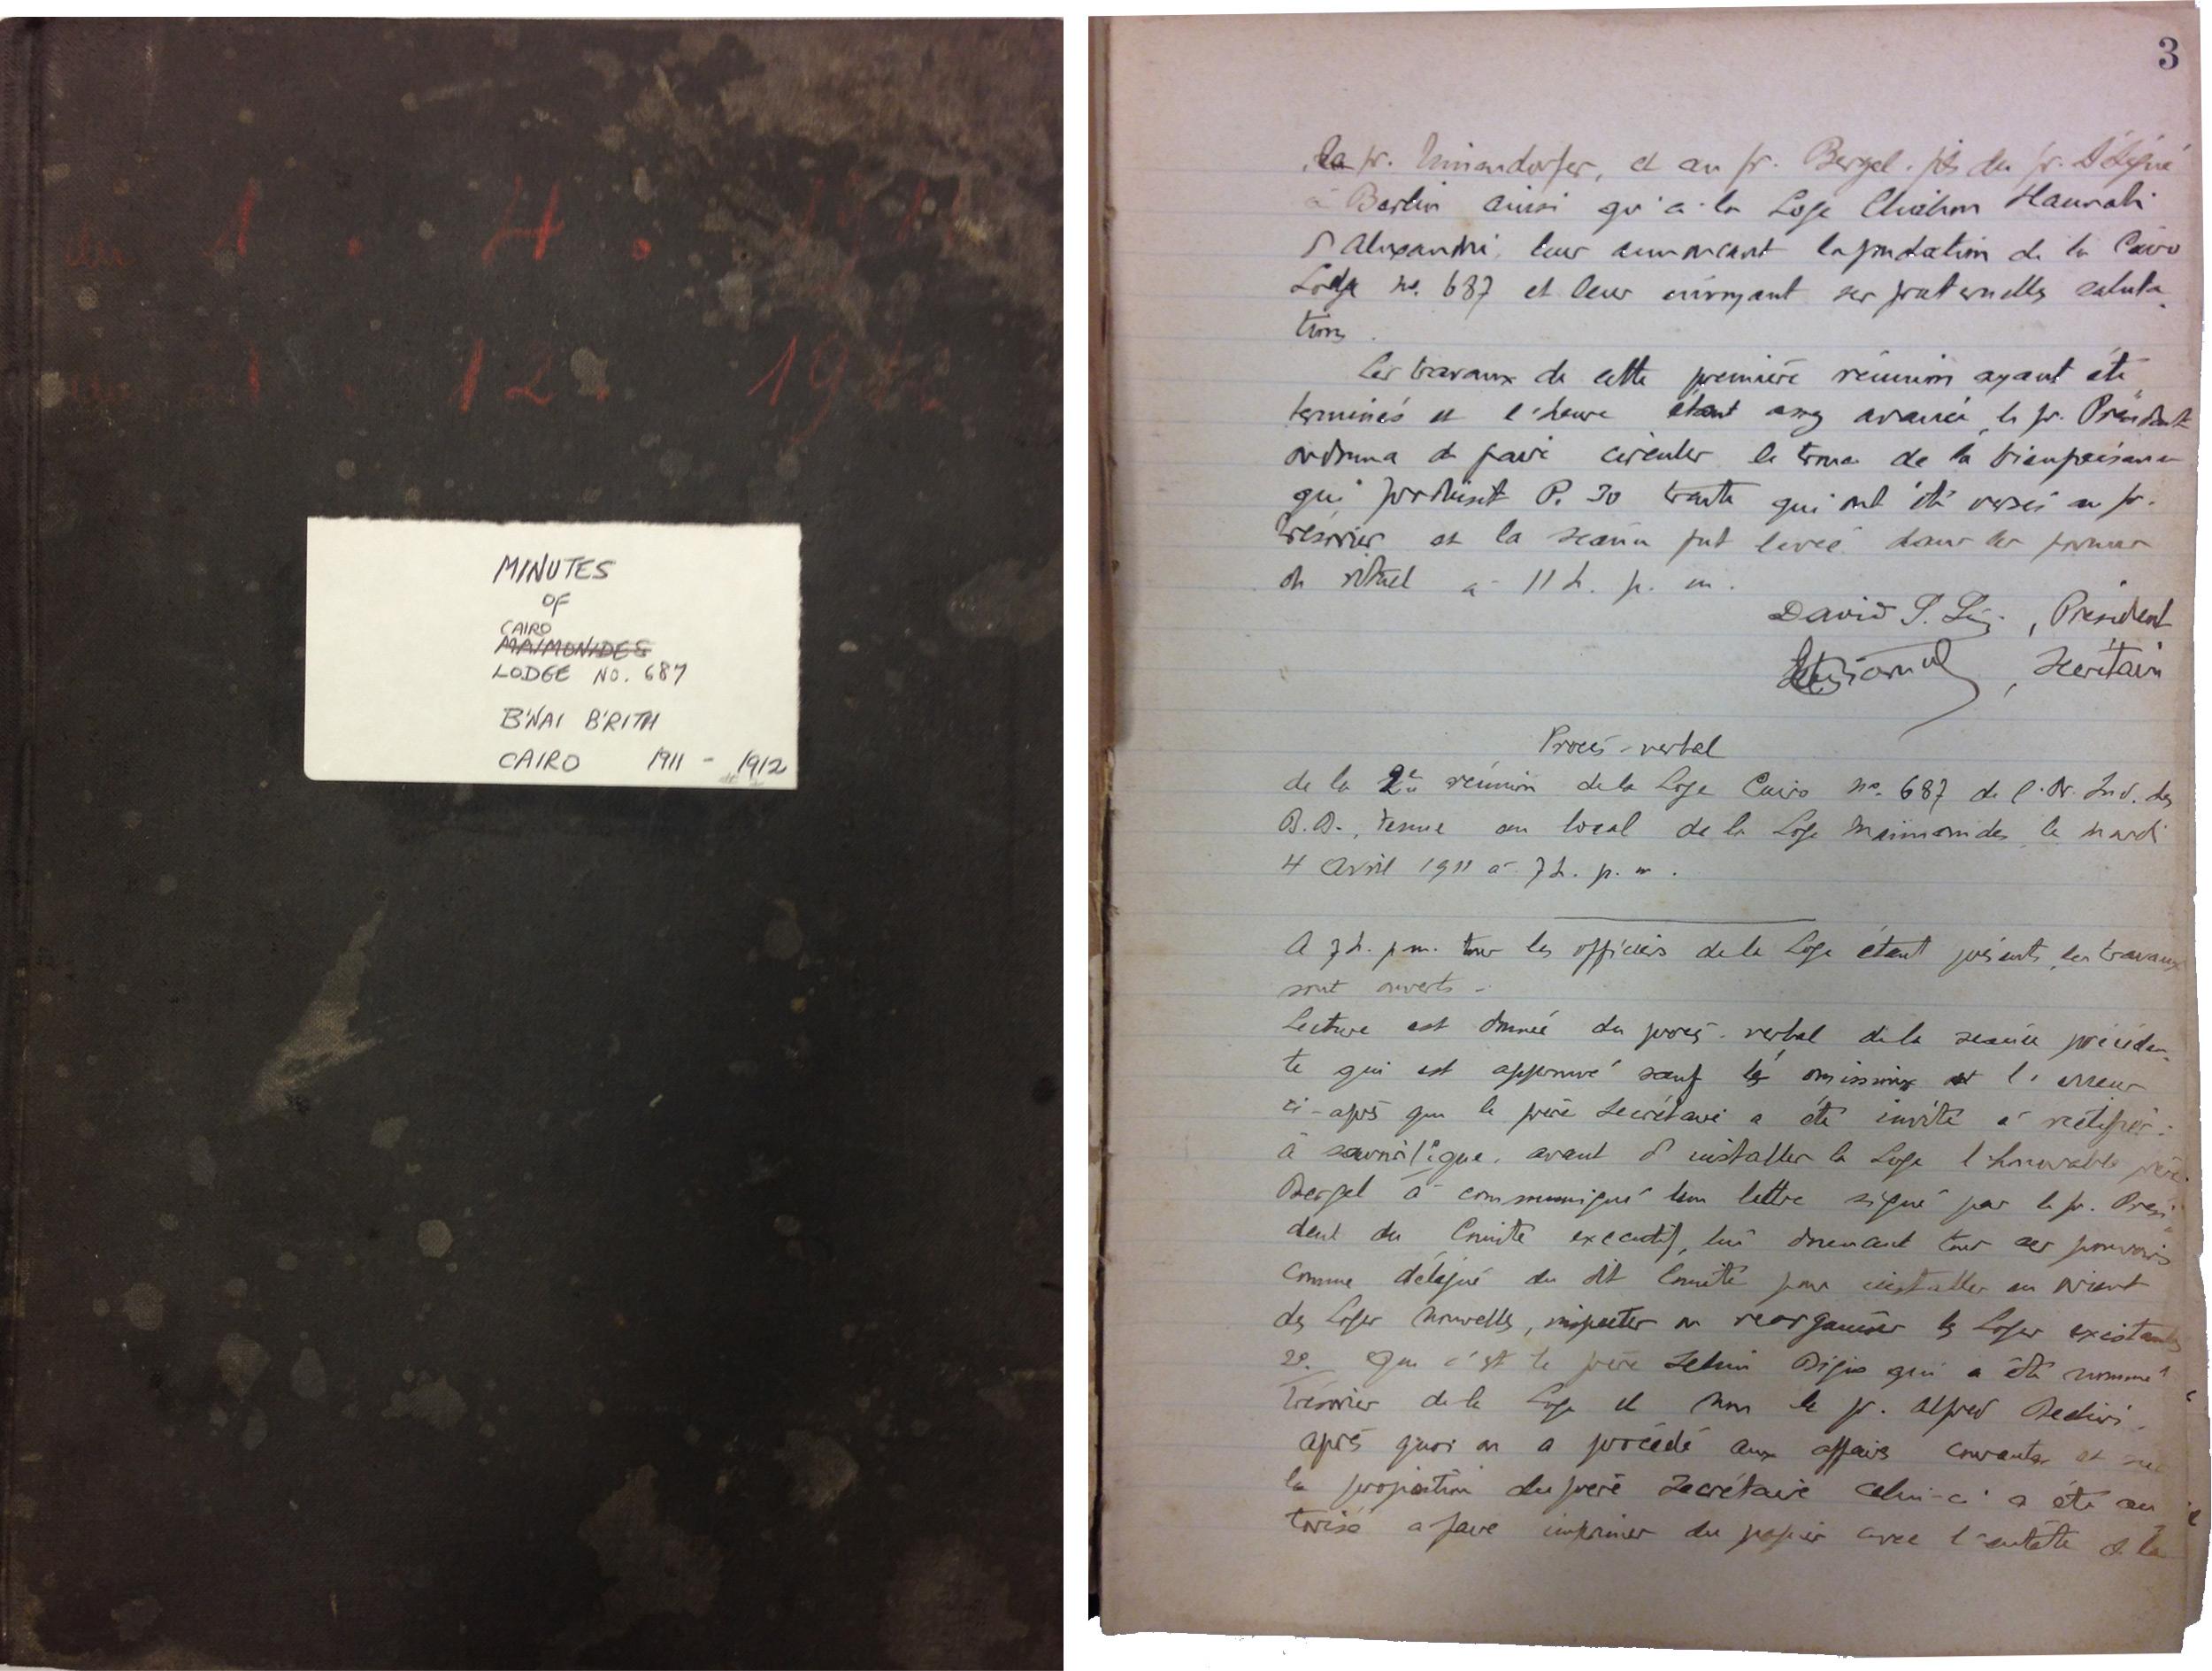 1 . 4 .
1 . 12 . 19
MINUTES
OF
CAIRO
MAIMONIDES
LODGE NO. 687
B'NAI B'RITH
CAIRO 1911 - 1912
3
fr. et au fr. Bergel. du fr. Délégué
à Berlin ainsi qu'à la Loge Eliahou Hannabi
d'Alexandrie, leur annonçant la fondation de la Cairo
Loge no. 687 et leur envoyant ses fraternelles saluta-
tions.
Les travaux de cette première réunion ayant été
terminés et l'heure étant assez avancée, le fr. Président
ordonna de faire circuler le tronc de la bienfaisance
qui produisit P. 30 trente qui ont été versés au fr.
Trésorier et la séance fut levée dans les formes
du rituel à 11 h. p. m.
David S. , Président
, Secrétaire
Procès-verbal
de la 2e réunion de la Loge Cairo no. 687 de l'Or. Ind. des
B. B., tenue au local de la Loge Maimonides, le mardi
4 Avril 1911 à 7 h. p. m.
A 7 h. p m. tous les officiers de la Loge étant présents, les travaux
sont ouverts -
Lecture est donnée du procès-verbal de la séance précéden-
te qui est approuvé sauf les omissions et l'erreur
ci-après que le frère Secrétaire a été invité à rectifier:
à savoir 1° que, avant d'installer la Loge l'honorable frère
Bergel a communiqué une lettre signée par le fr. Prési-
dent du Comité executif, lui donnant tous ses pouvoirs
comme délégué du dit Comité pour installer en Orient
des Loges nouvelles, inspecter ou reorganiser les Loges existantes
2o. Que c'est le frère Selim qui a été nommé
trésorier de la Loge et non le fr. Alfred
après quoi on a procédé aux affaires courantes et sur
la proposition du frère Secrétaire celui-ci a été au
torisé a faire imprimer du papier avec l'entête de la